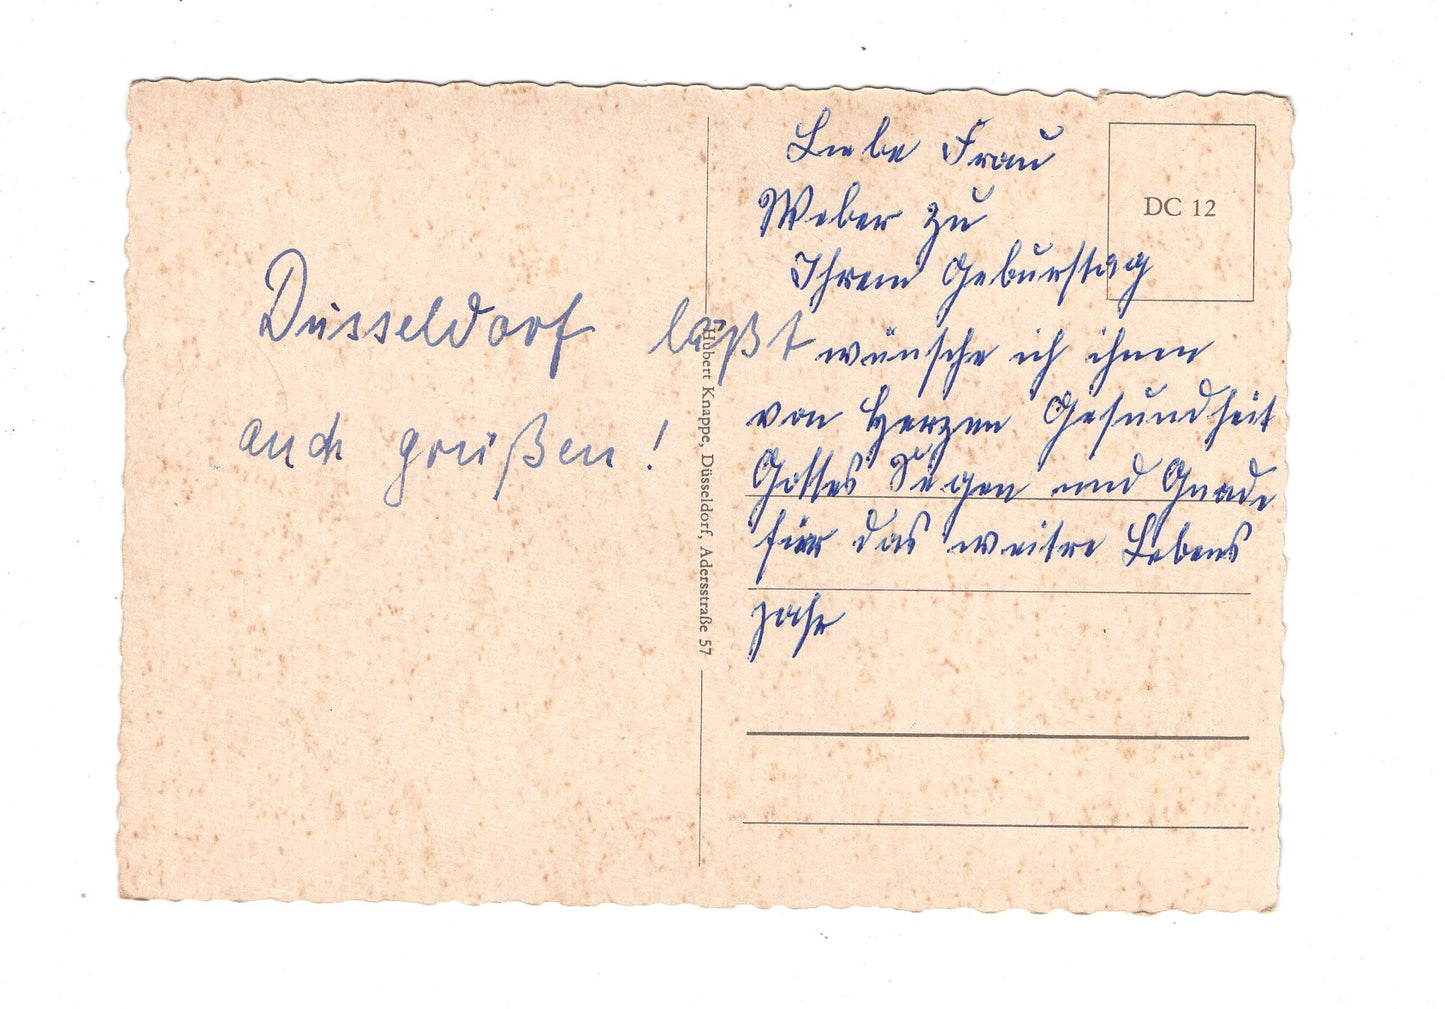 Düsseldorf läßt
auch grüßen!
Hubert Knappe, Düsseldorf, Adersstraße 57
DC 12
Liebe Frau
Weber zu
Ihrem Geburstag
wünsche ich ihnen
von Herzen Gesundheit
Gottes Segen und Gnade
für das weitre Lebens
jahr